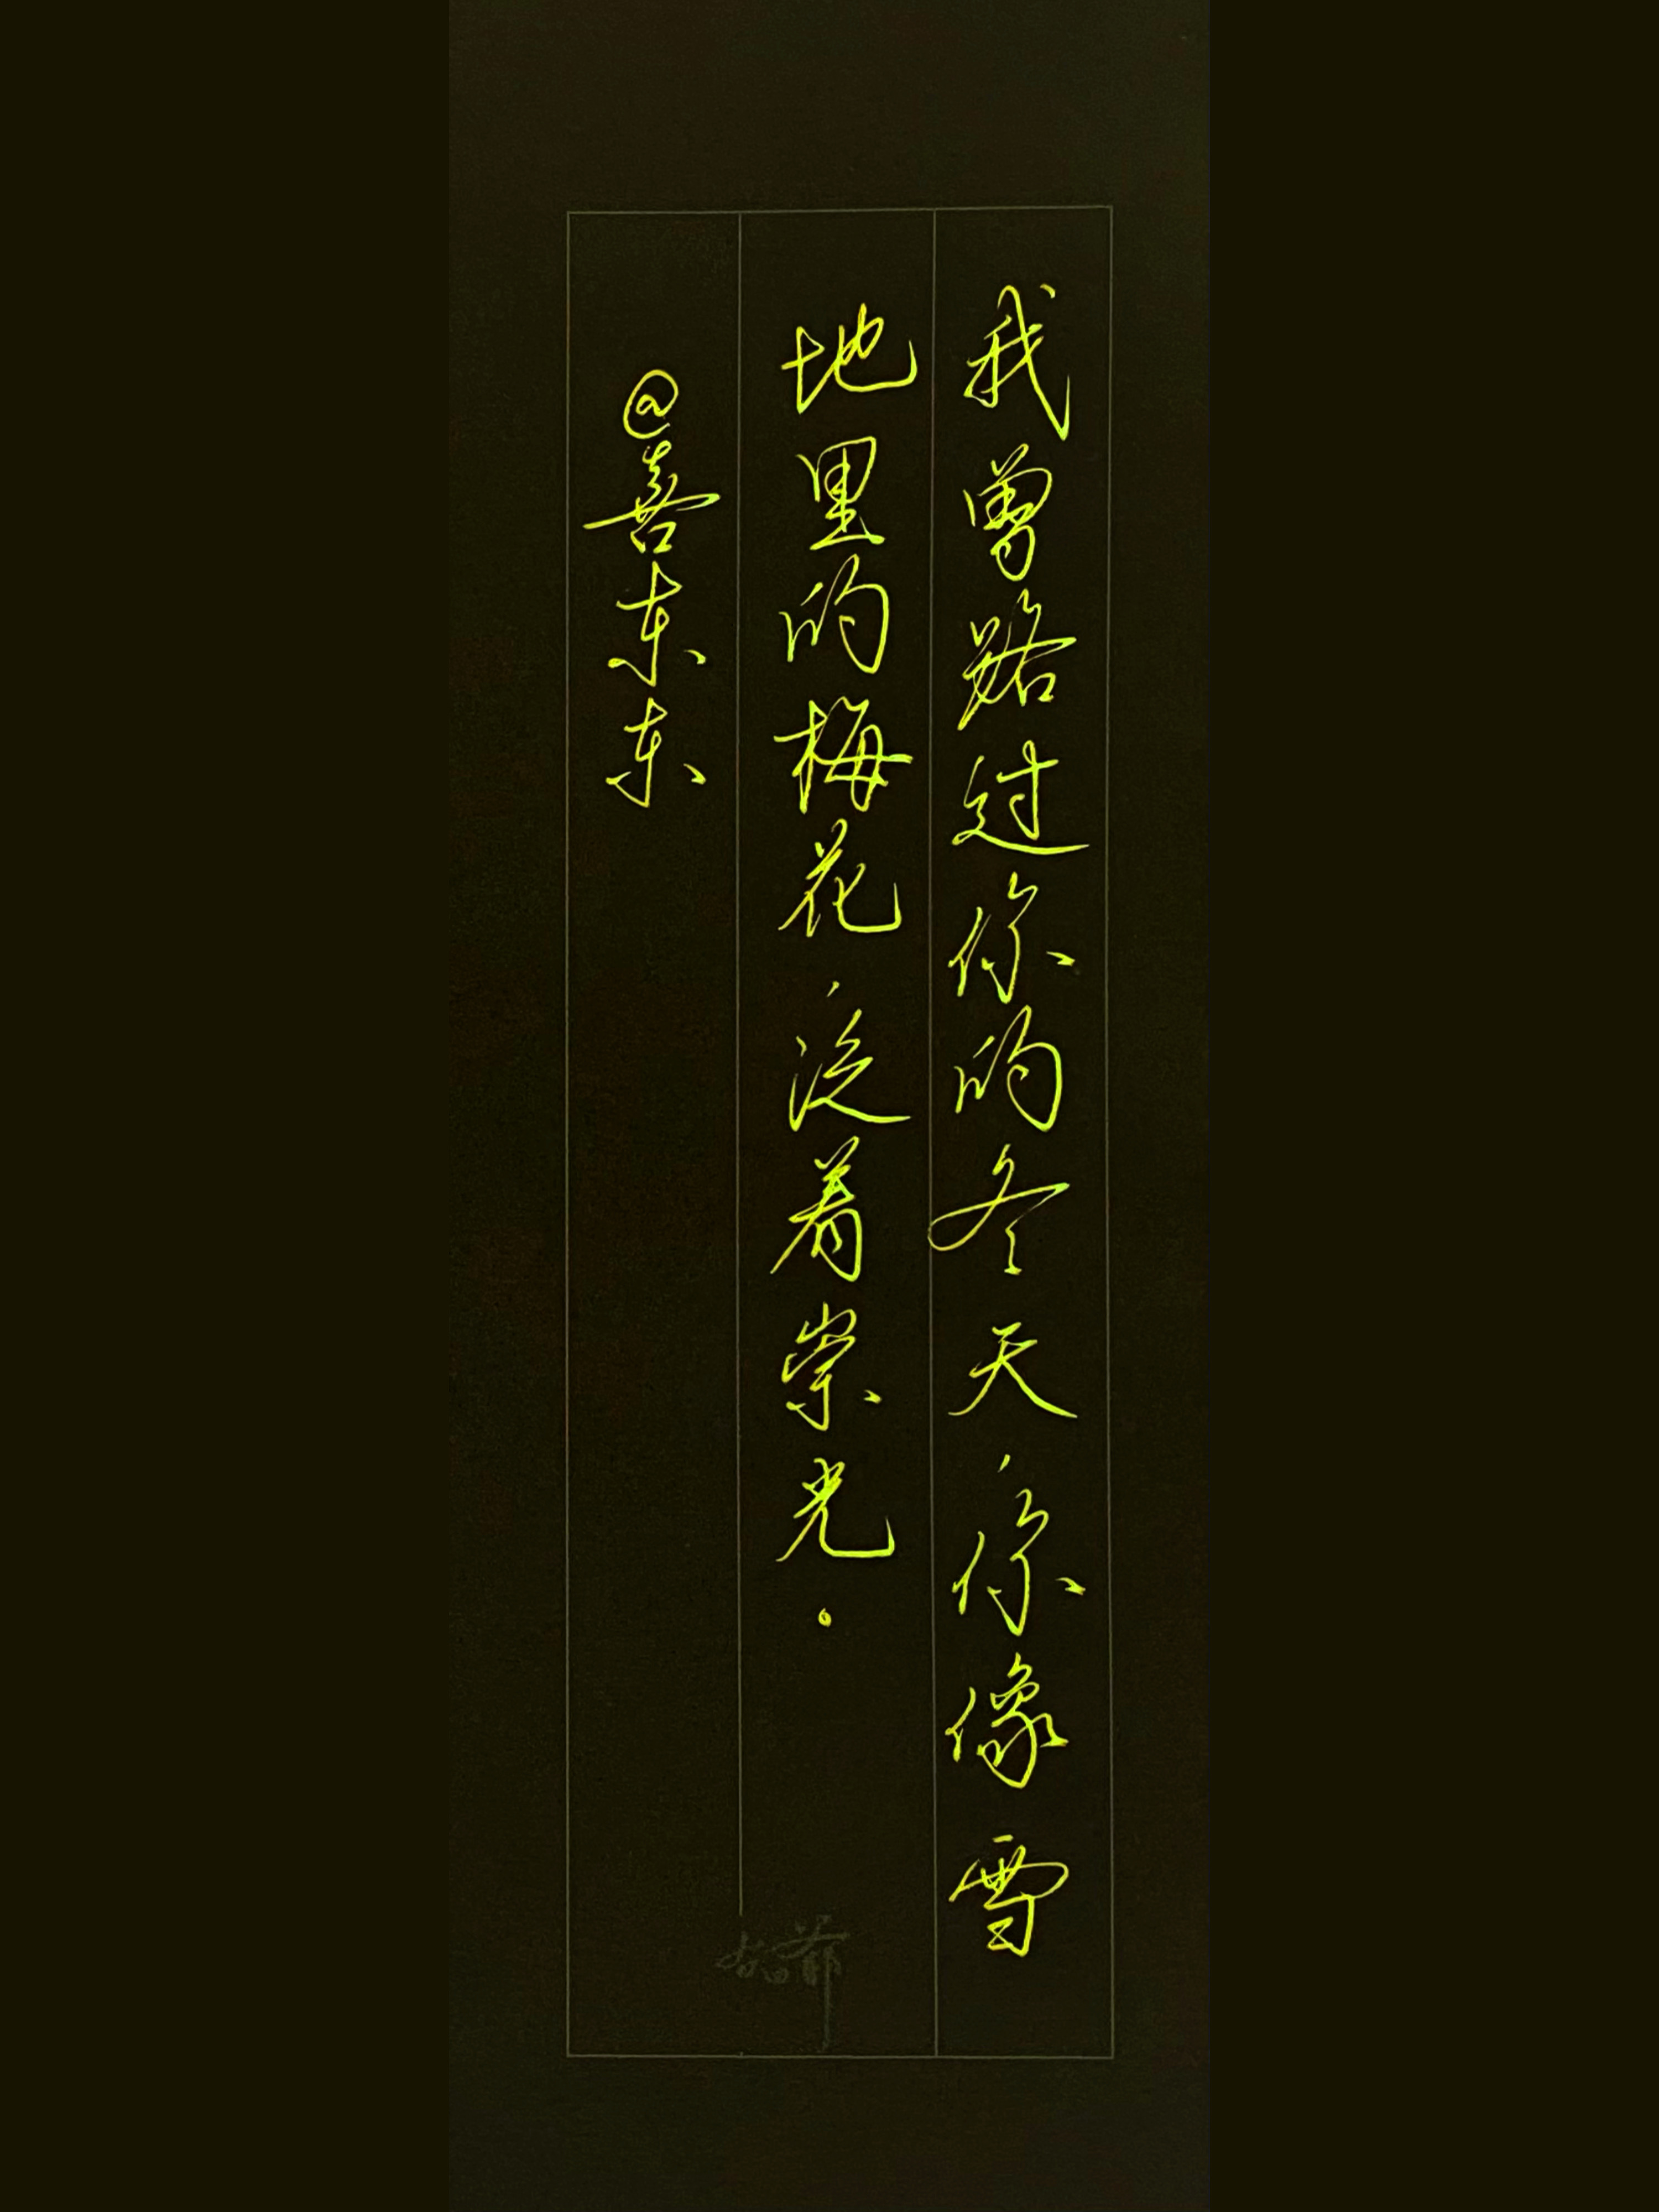 我曾路过你的冬天，你像雪
地里的梅花，泛着崇光。
@喜东东